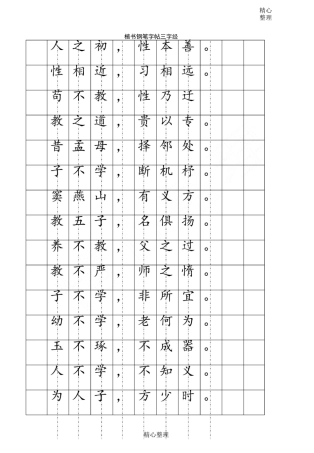 精心
整理
楷书钢笔字帖三字经
人之初，性本善。
性相近，习相远。
苟不教，性乃迁
教之道，贵以专。
昔孟母，择邻处。
子不学，断机杼。
窦燕山，有义方。
教五子，名俱扬。
养不教，父之过。
教不严，师之惰。
子不学，非所宜。
幼不学，老何为。
玉不琢，不成器。
人不学，不知义。
为人子，方少时。
精心整理